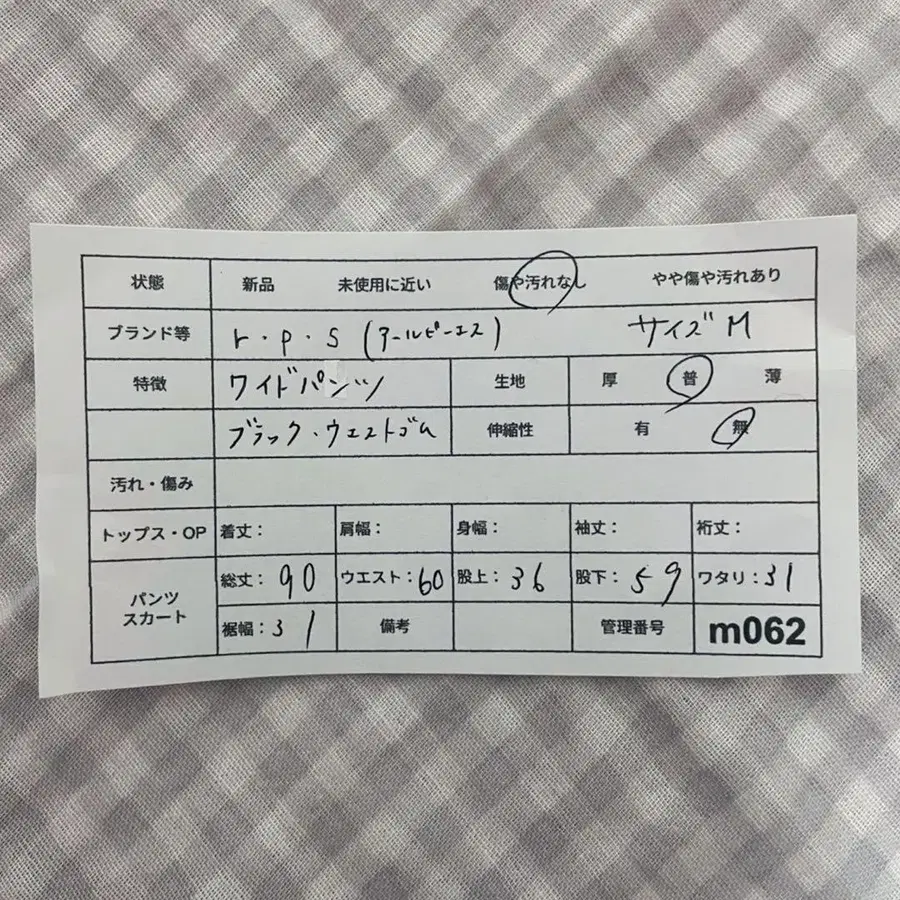 状態 新品 未使用に近い 傷や汚れなし やや傷や汚れあり
ブランド等 r・p・s (アールピーエス) サイズM
特徴 ワイドパンツ 生地 厚 普 薄
ブラック・ウエストゴム 伸縮性 有 無
汚れ・傷み
トップス・OP 着丈: 肩幅: 身幅: 袖丈: 裄丈:
パンツ スカート 総丈:90 ウエスト:60 股上:36 股下:59 ワタリ:31
裾幅:31 備考 管理番号 m062